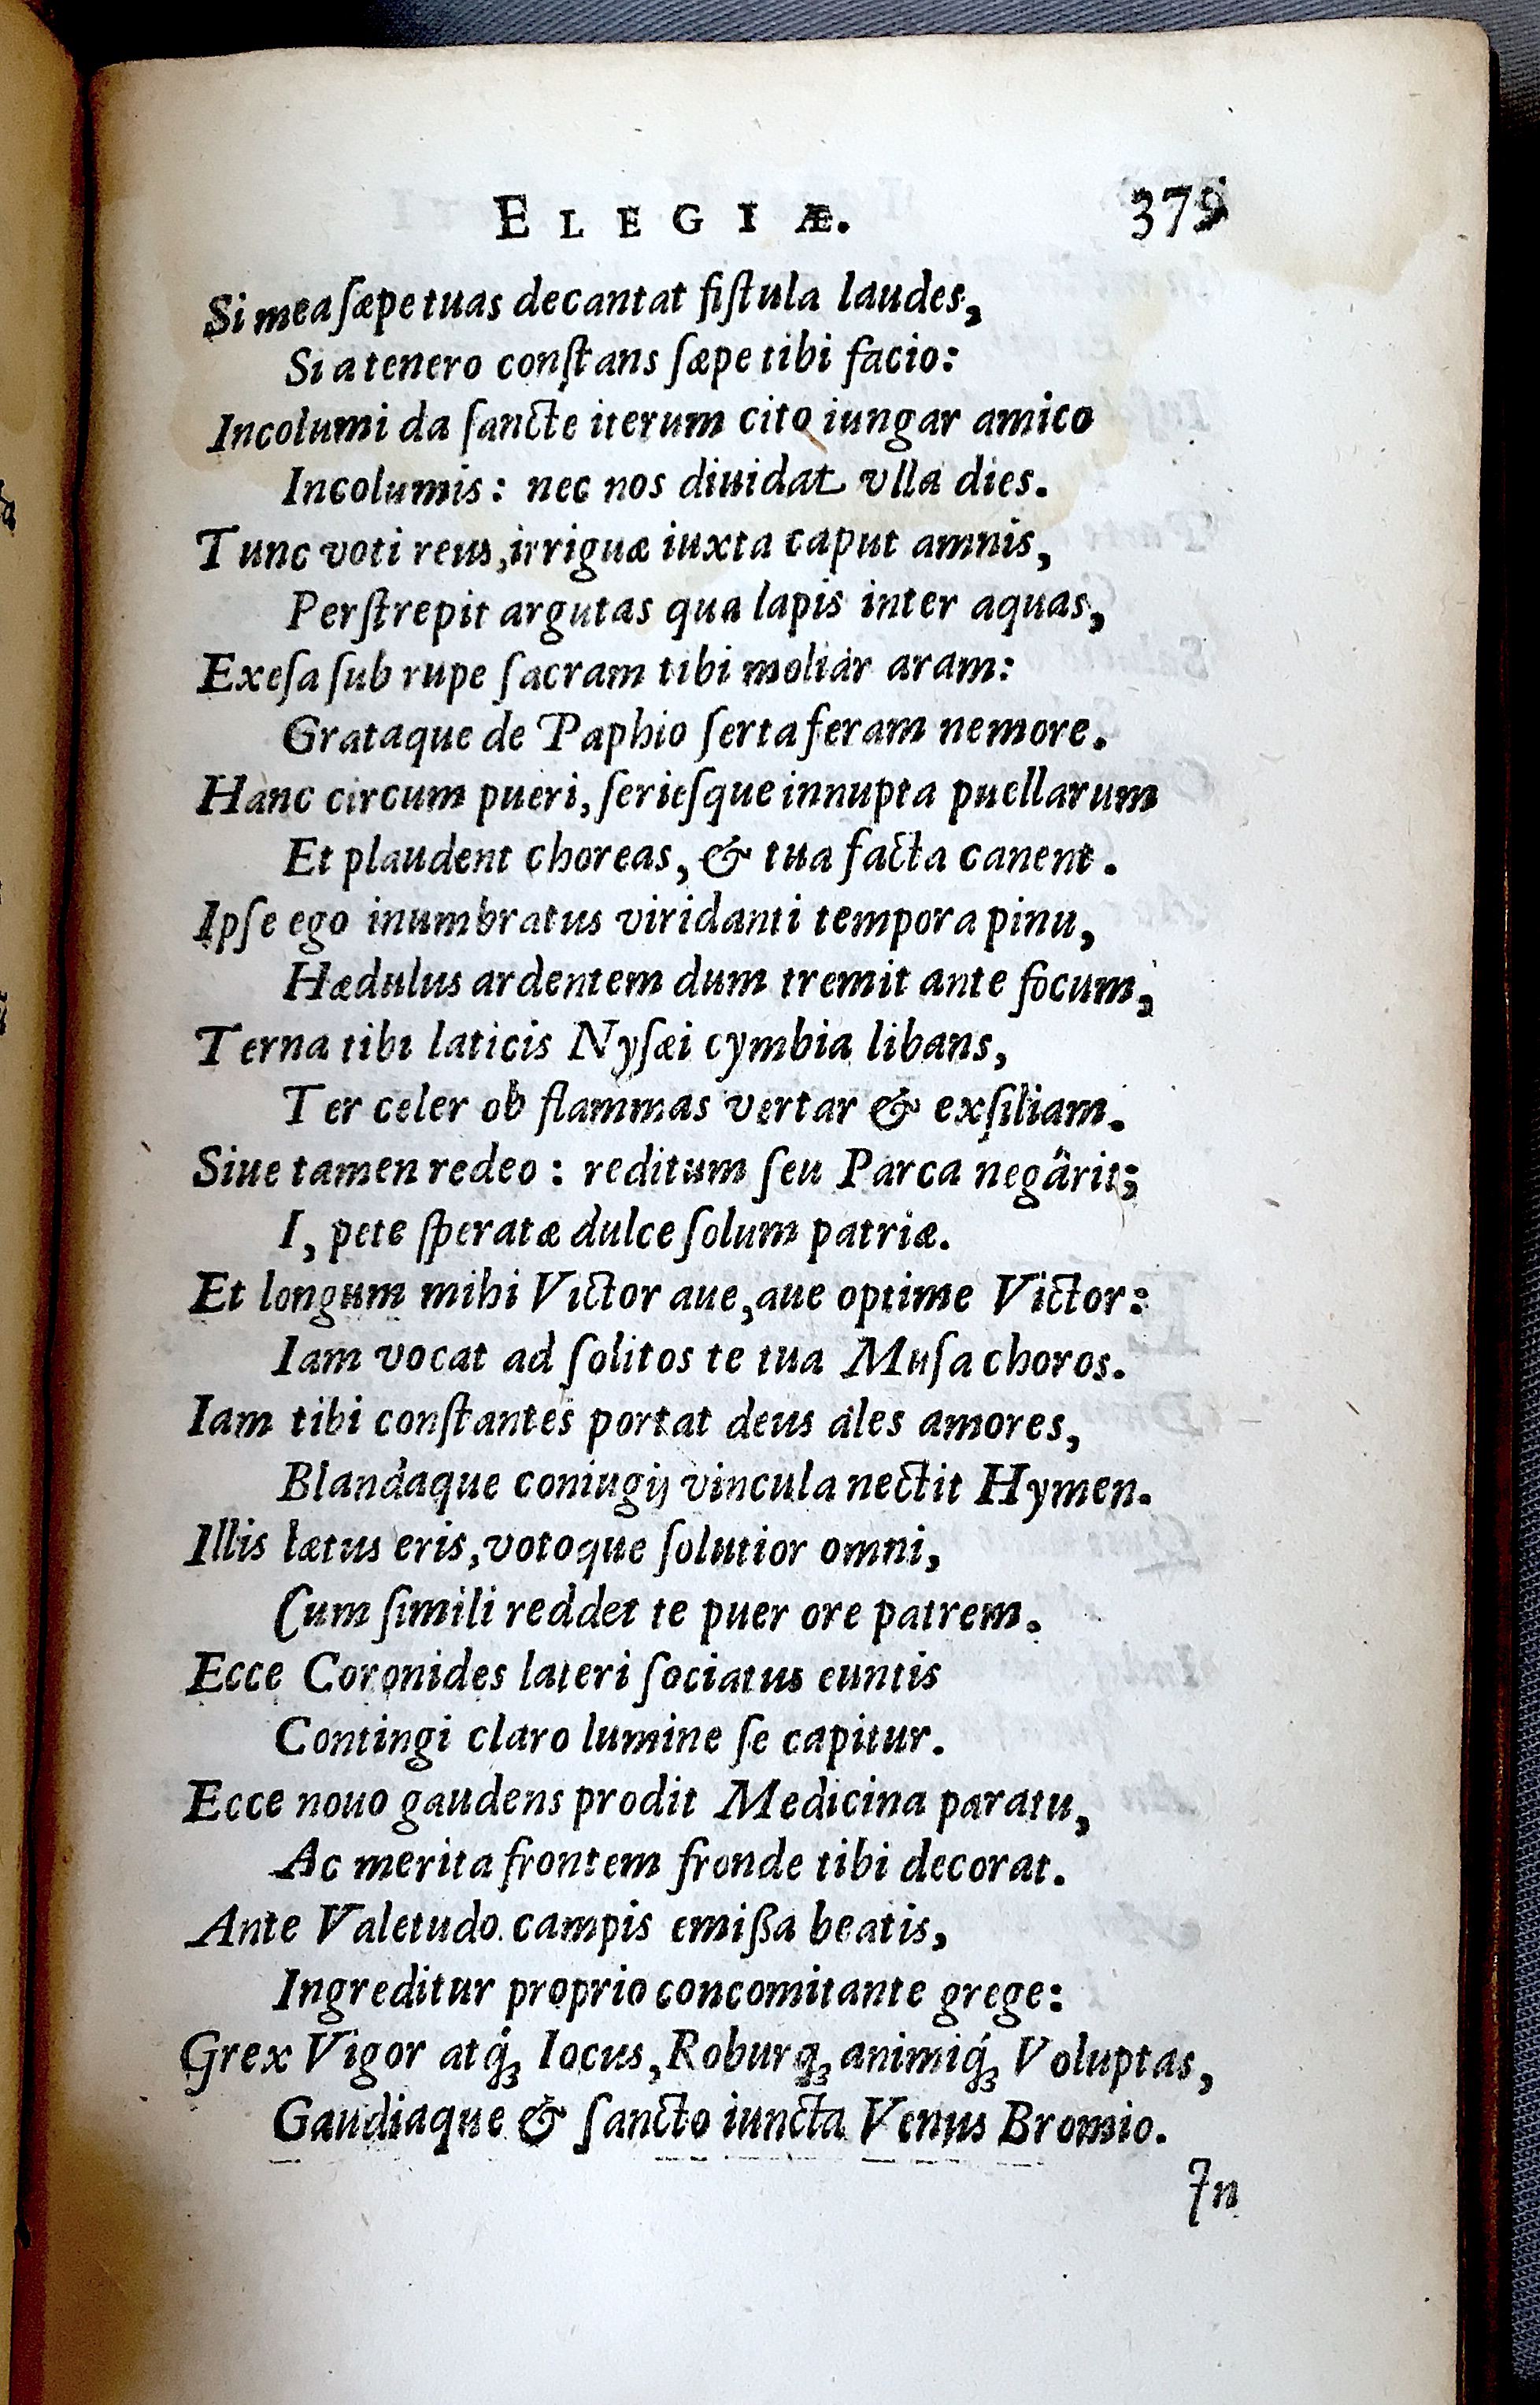 ELEGIÆ. 379
Si mea ſæpe tuas decantat fiſtula laudes,
Si a tenero conſtans ſæpe tibi facio:
Incolumi da ſancte iterum cito iungar amico
Incolumis: nec nos diuidat vlla dies.
Tunc voti reus, irriguæ iuxta caput amnis,
Perſtrepit argutas qua lapis inter aquas,
Exeſa ſub rupe ſacram tibi moliar aram:
Grataque de Paphio ſerta feram nemore.
Hanc circum pueri, ſerieſque innupta puellarum
Et plaudent choreas, & tua facta canent.
Ipſe ego inumbratus viridanti tempora pinu,
Hædulus ardentem dum tremit ante focum,
Terna tibi laticis Nyſæi cymbia libans,
Ter celer ob flammas vertar & exſiliam.
Siue tamen redeo: reditum ſeu Parca negârit;
I, pete ſperatæ dulce ſolum patriæ.
Et longum mihi Victor aue, aue optime Victor:
Iam vocat ad ſolitos te tua Muſa choros.
Iam tibi conſtantes portat deus ales amores,
Blandaque coniugij vincula nectit Hymen.
Illis lætus eris, votoque ſolutior omni,
Cum ſimili reddet te puer ore patrem.
Ecce Coronides lateri ſociatus euntis
Contingi claro lumine ſe capitur.
Ecce nouo gaudens prodit Medicina paratu,
Ac merita frontem fronde tibi decorat.
Ante Valetudo campis emißa beatis,
Ingreditur proprio concomitante grege:
Grex Vigor atq́; Iocus, Roburq; animiq́; Voluptas,
Gaudiaque & ſancto iuncta Venus Bromio.
In